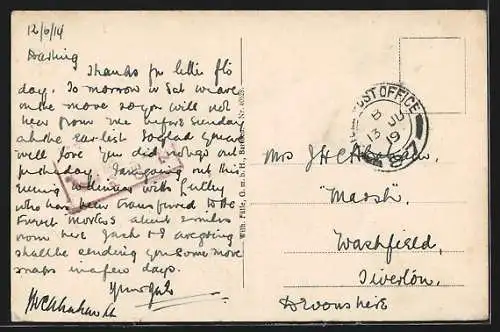 12/6/19
Darling
Thanks for letter
day. To morrow is Sat we are
on the move so you will not
hear from me before Sunday
at the earliest. So glad you are
well love you did not go out
yesterday. I am going out this
evening with
who has been transferred to the
Trench Mortars about 2 miles
from here Jack & I are going
shall be sending you some more
snaps in a few days.
Yours
Wilh. Fülle, G. m. b. H., Barmen
POST OFFICE
8
13 JU
19
87
Mrs
"Marsh"
Washfield,
Tiverton,
Devonshire